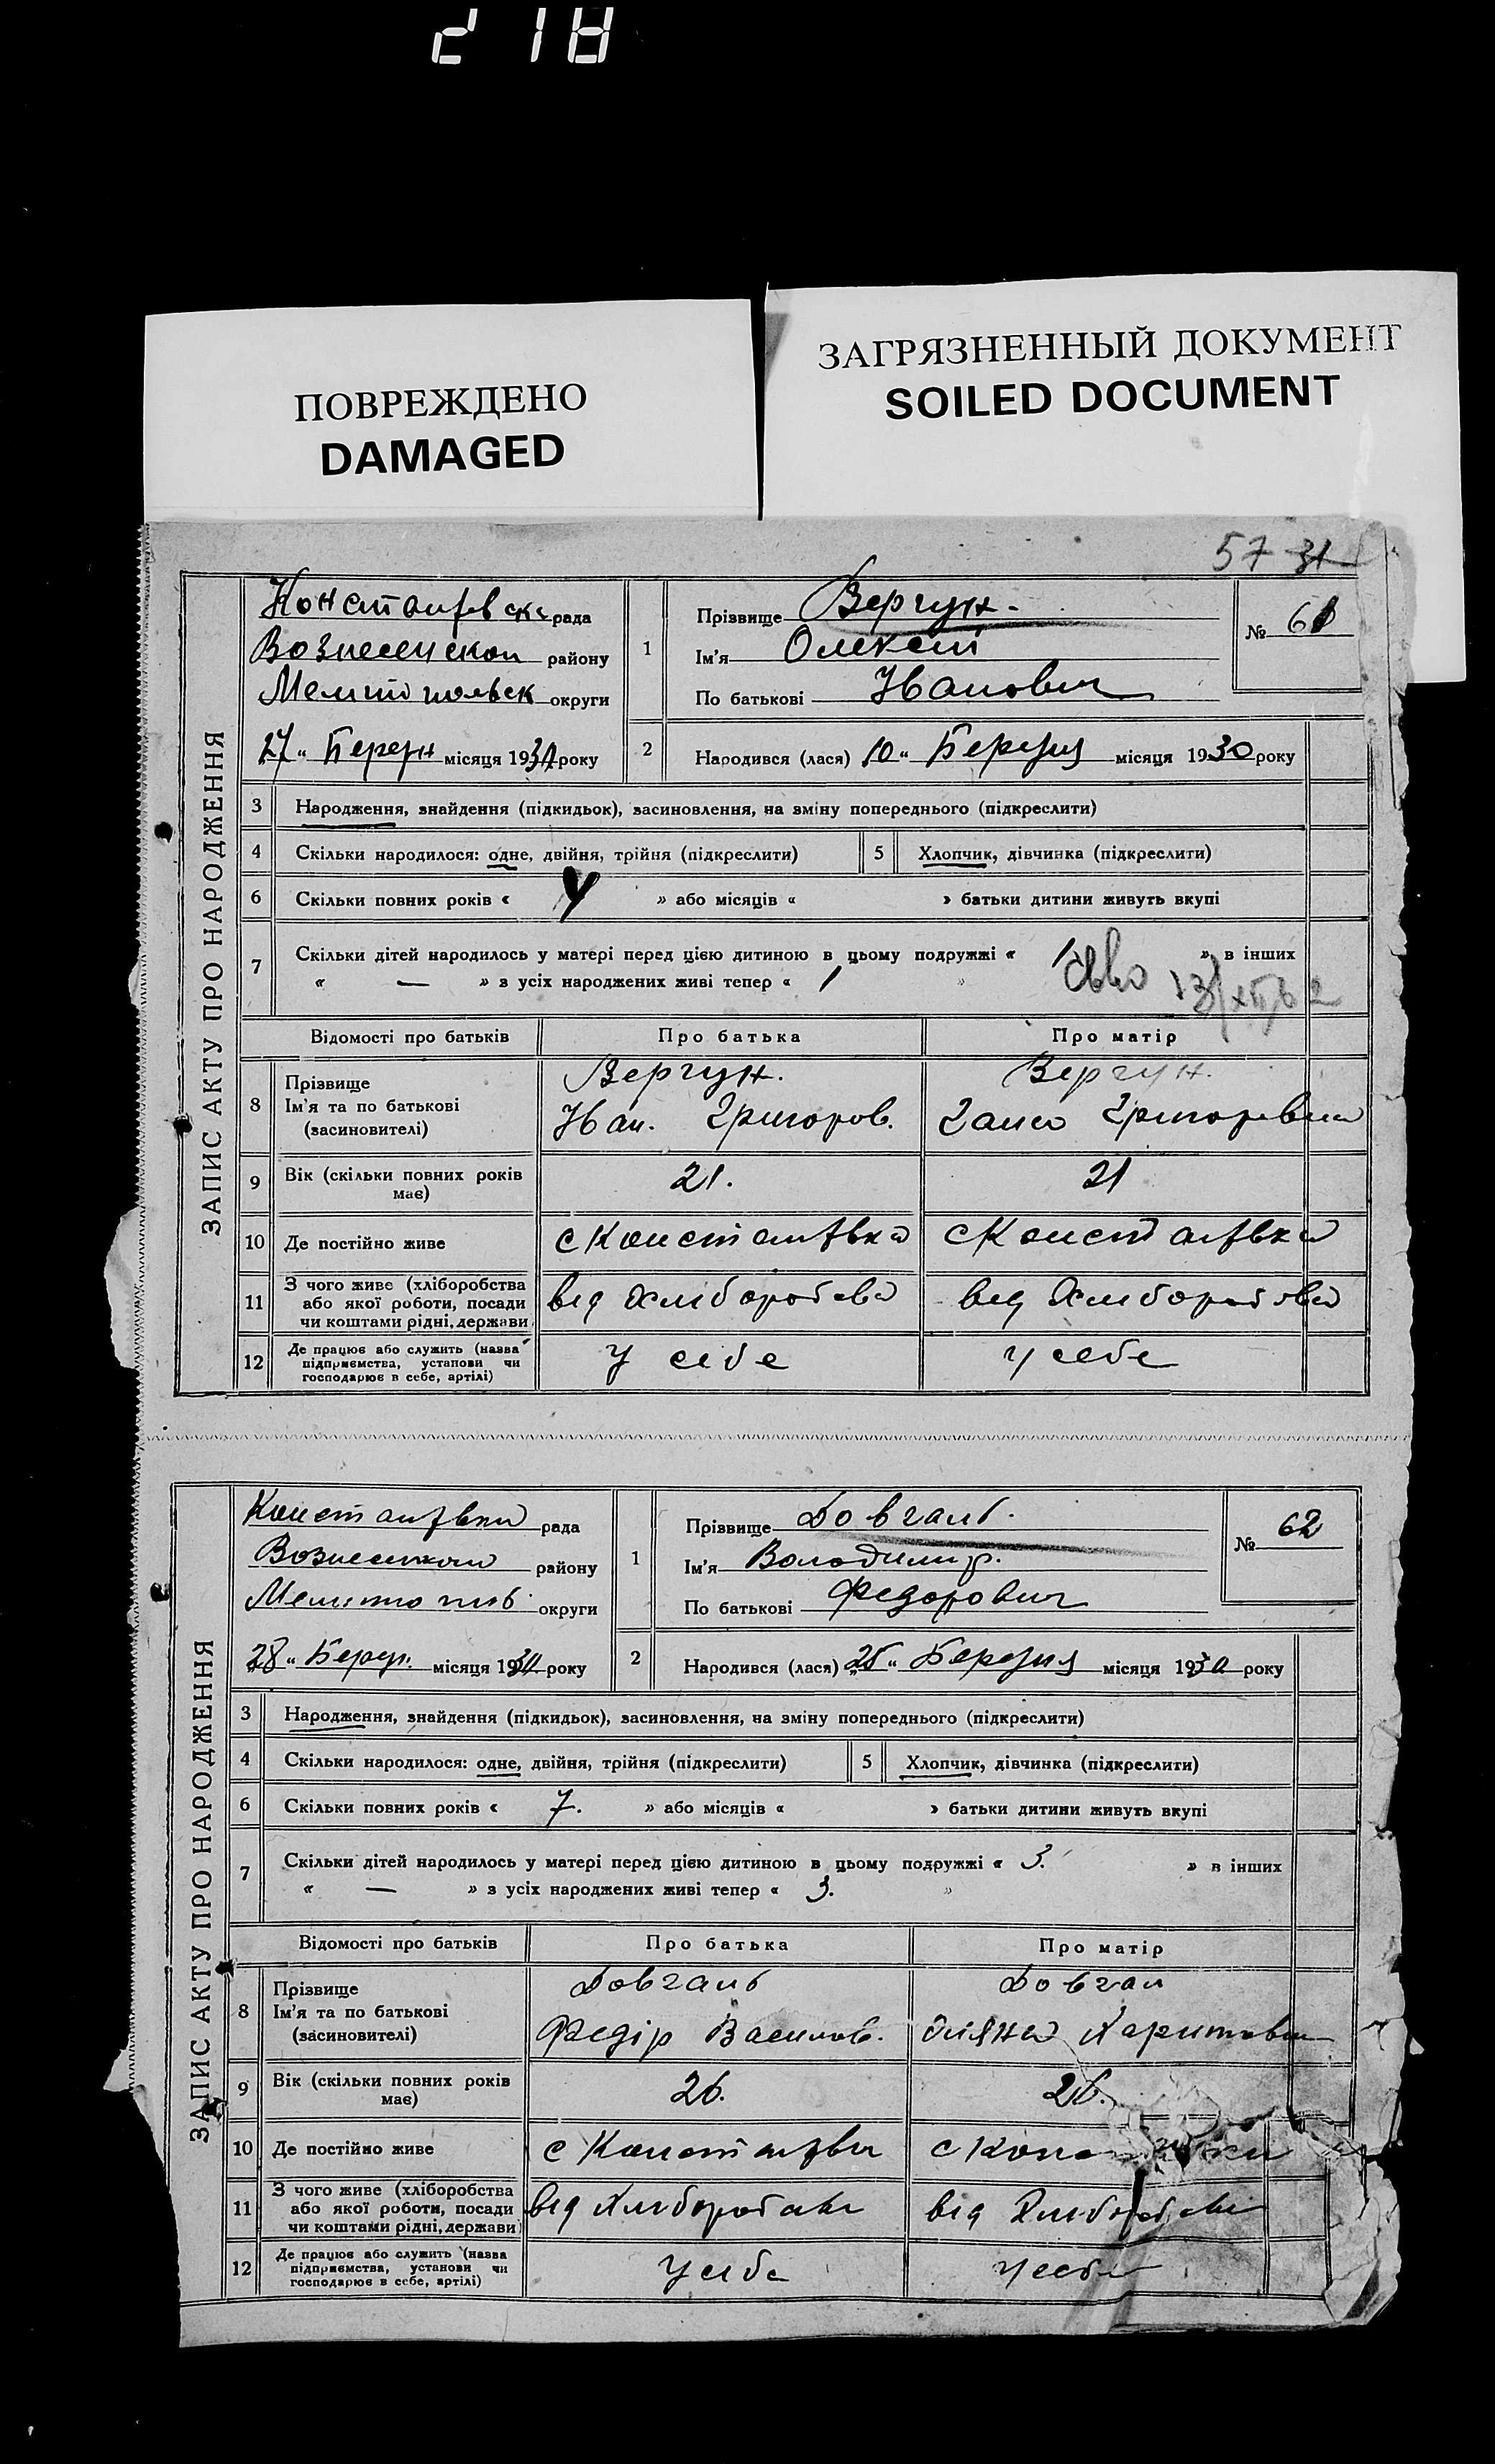 218
ПОВРЕЖДЕНО
DAMAGED
ЗАГРЯЗНЕННЫЙ ДОКУМЕНТ
SOILED DOCUMENT
57 31
ЗАПИС АКТУ ПРО НАРОДЖЕННЯ
рада
району
Мелитопольск округи
27 " Березн місяця 1930 року
1 Прізвище Вергун.
Ім'я Олексій
По батькові Иванович
№ 61
2 Народився (лася) 10 " Березня місяця 1930 року
3 Народження, знайдення (підкидьок), засиновлення, на зміну попереднього (підкреслити)
4 Скільки народилося: одне, двійня, трійня (підкреслити) 5 Хлопчик, дівчинка (підкреслити)
6 Скільки повних років « » або місяців « » батьки дитини живуть вкупі
7 Скільки дітей народилось у матері перед цією дитиною в цьому подружжі « 1 » в інших
« — » з усіх народжених живі тепер « 1 »
Відомості про батьків Про батька Про матір
8 Прізвище Вергун. Вергун.
Ім'я та по батькові Иван. Григоров. Григоревна
(засиновителі)
9 Вік (скільки повних років має) 21. 21
10 Де постійно живе с Константівка с Константівка
11 З чого живе (хліборобства або якої роботи, посади чи коштами рідні, держави) від Хліборобства від Хліборобства
12 Де працює або служить (назва підприємства, установи чи господарює в себе, артілі) у себе у себе
ЗАПИС АКТУ ПРО НАРОДЖЕННЯ
Константівка рада
району
округи
28 " Березн. місяця 1930 року
1 Прізвище Довгаль.
Ім'я Володимир.
По батькові Федорович
№ 62
2 Народився (лася) „25 " Березня місяця 1930 року
3 Народження, знайдення (підкидьок), засиновлення, на зміну попереднього (підкреслити)
4 Скільки народилося: одне, двійня, трійня (підкреслити) 5 Хлопчик, дівчинка (підкреслити)
6 Скільки повних років « 7. » або місяців « » батьки дитини живуть вкупі
7 Скільки дітей народилось у матері перед цією дитиною в цьому подружжі « 3. » в інших
« — » з усіх народжених живі тепер « 3. »
Відомості про батьків Про батька Про матір
8 Прізвище Довгаль Довгал
Ім'я та по батькові Федір Василов. Харитовна
(засиновителі)
9 Вік (скільки повних років має) 26. 26.
10 Де постійно живе с
11 З чого живе (хліборобства або якої роботи, посади чи коштами рідні, держави) від Хліборобства від Хліборобства
12 Де працює або служить (назва підприємства, установи чи господарює в себе, артілі) у себе у себе